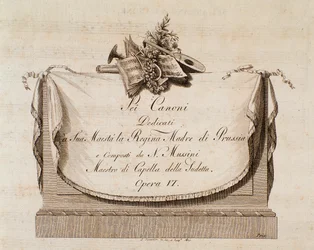 Sei Canoni
Dedicati
a Sua Maestà la Regina Madre di Prussia
e Composti da N. Mussini
Maestro di Capella della Sudetta.
Opera VI.